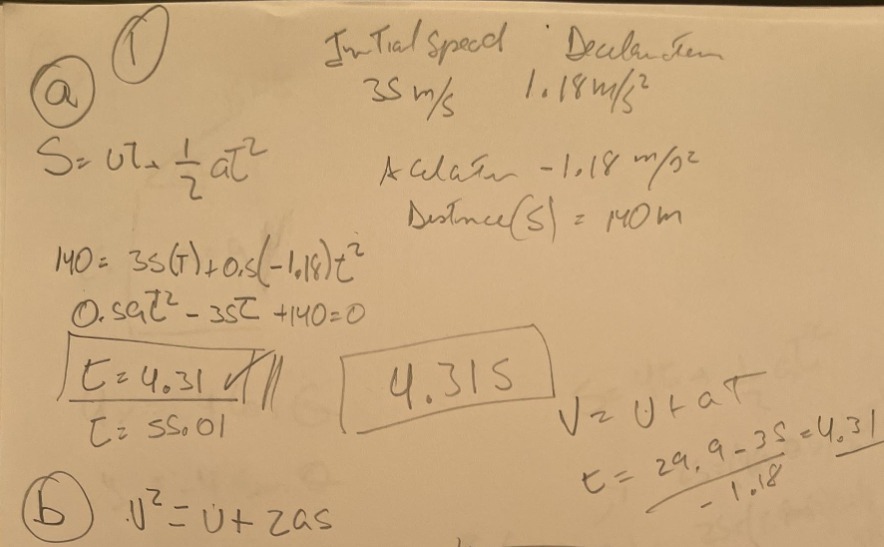 ①
ⓐ
Initial Speed Decelaration
35 m/s 1.18 m/s²
S = ut + 1/2 at²
Acelation -1.18 m/s²
Distnce(S) = 140m
140 = 35(T) + 0.5(-1.18)t²
0.59t² - 35t + 140 = 0
t = 4.31 ✓
t = 55.01
4.31S
V = U + aT
t = 29.9 - 35 / -1.18 = 4.31
ⓑ V² = U + 2as